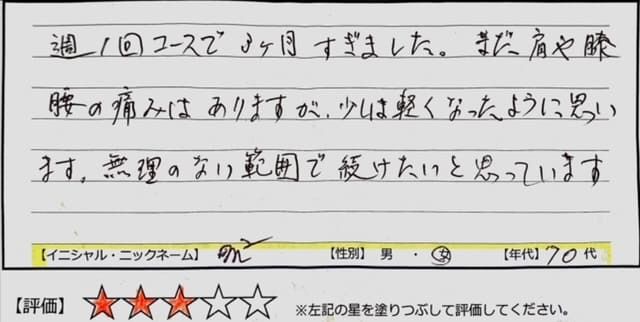 週1回コースで3ヶ月すぎました。まだ肩や膝
腰の痛みはありますが、少しは軽くなったように思い
ます。無理のない範囲で続けたいと思っています
【イニシャル・ニックネーム】 m² 【性別】 男 ・ 女 【年代】 70 代
【評価】 ★★★☆☆ ※左記の星を塗りつぶして評価してください。